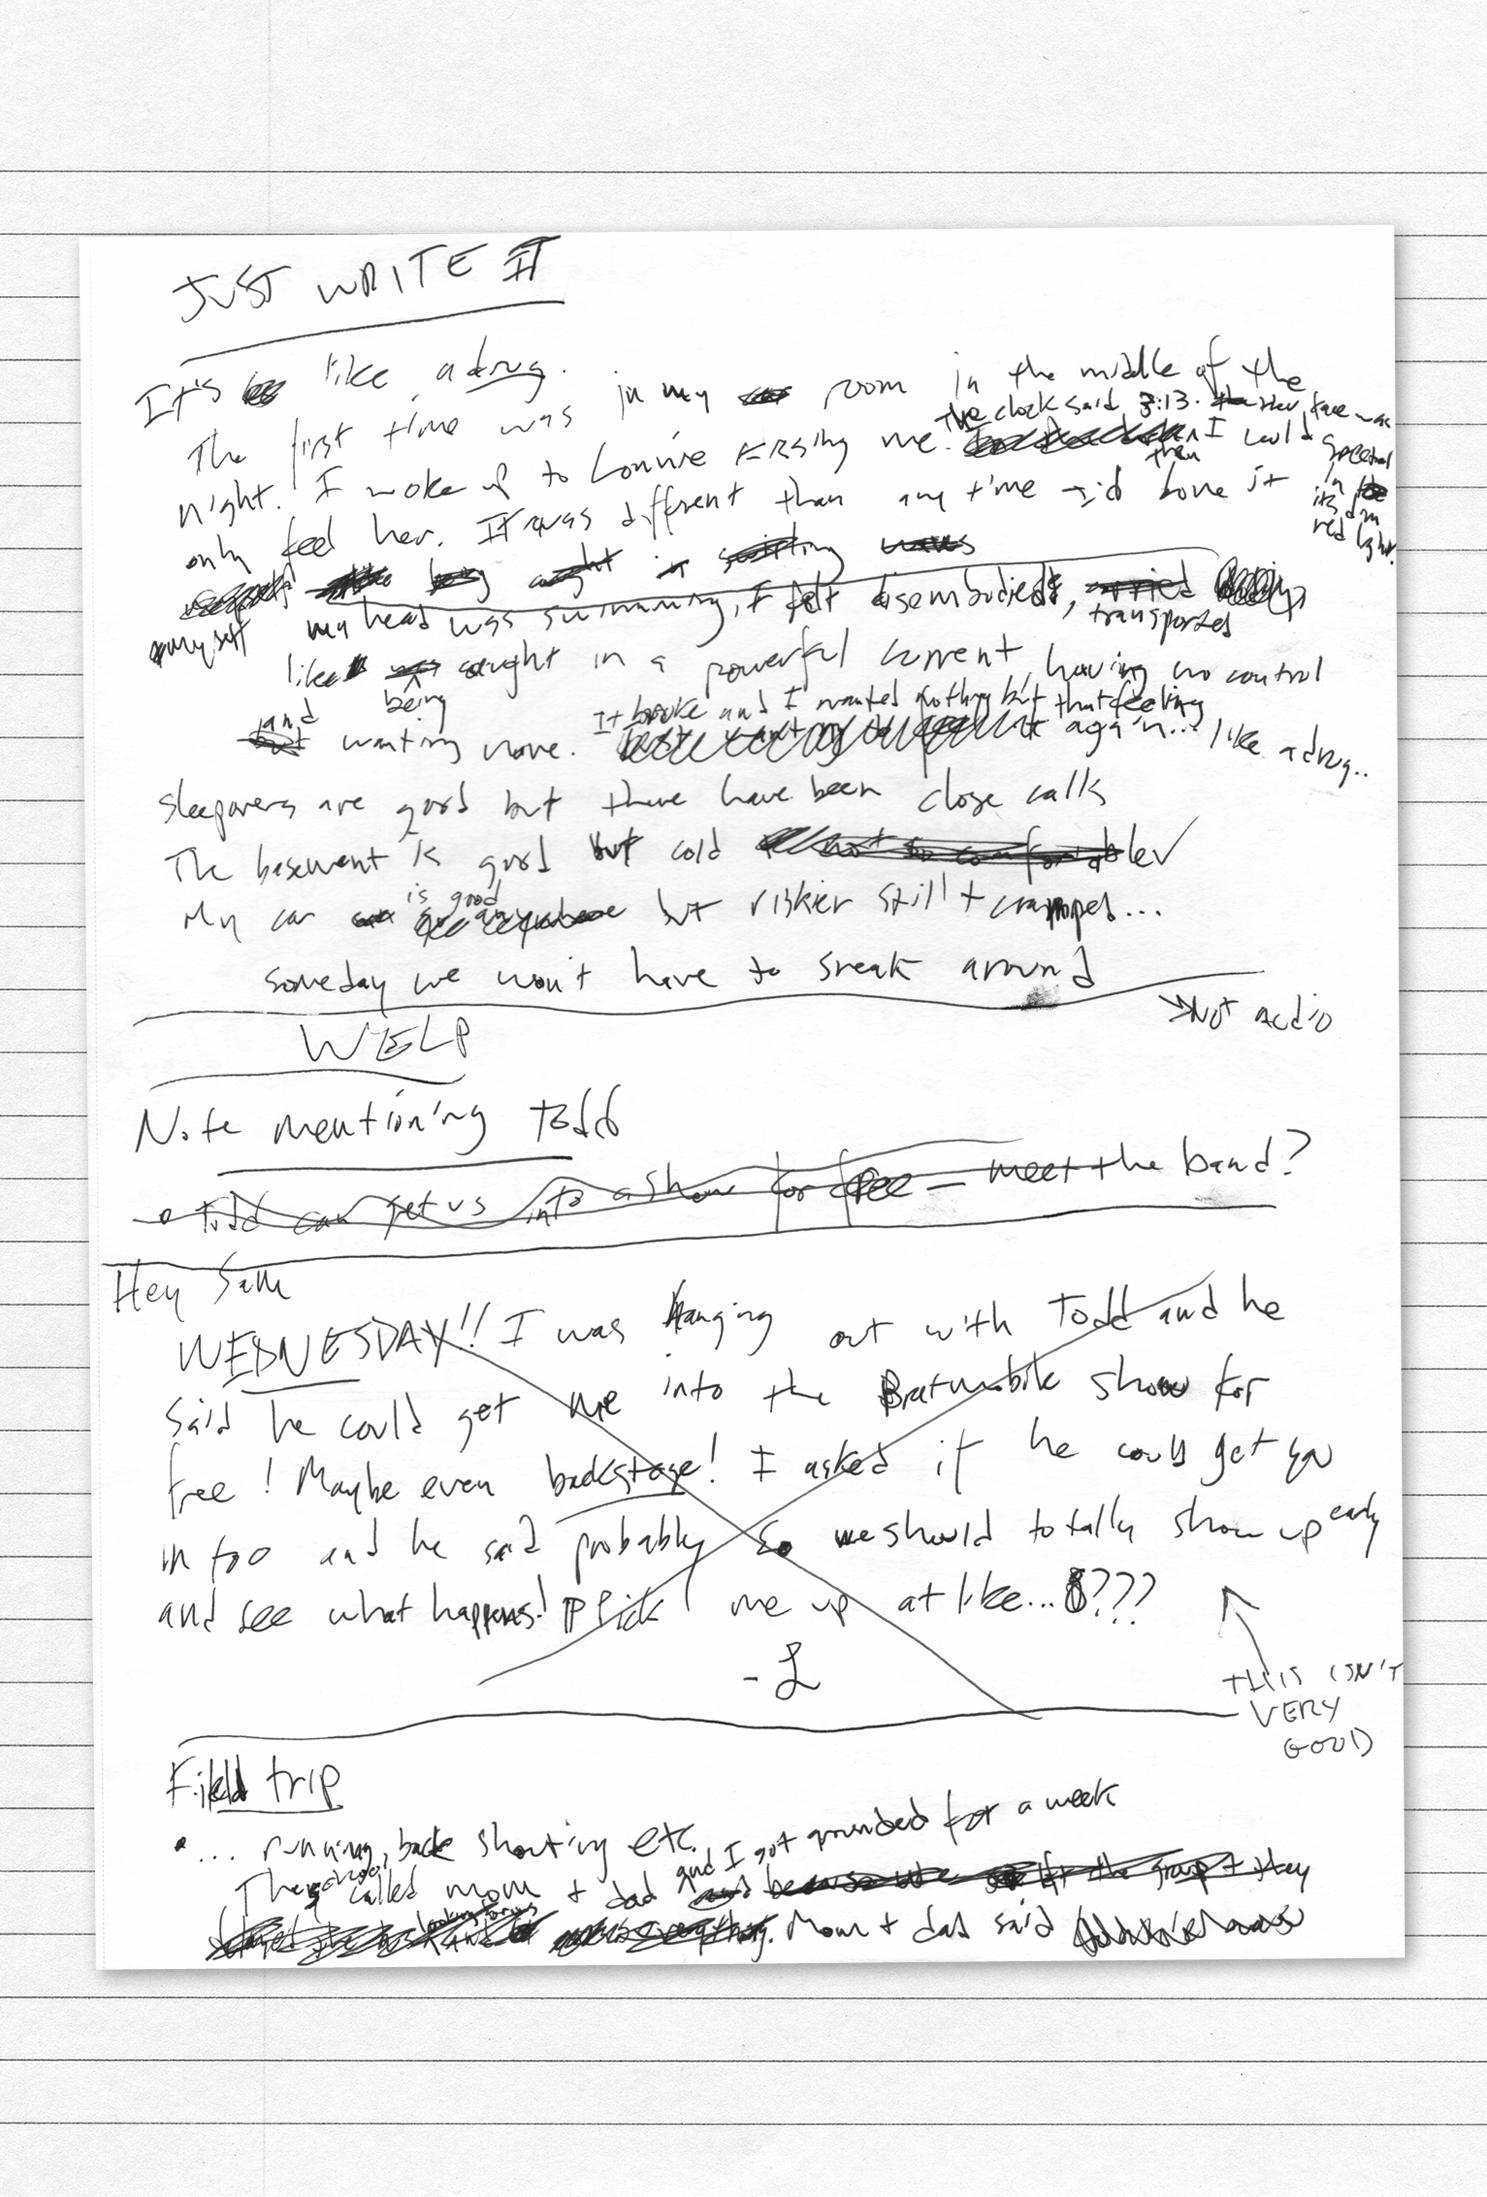 JUST WRITE IT
It's like a drug.
The first time was in my room in the middle of the
night. I woke up to Lonnie kissing me. the clock said 3:13. Her face was
spectral
in its dim
red light.
I could
only feel her. It was different than any time I'd done it then
myself my head was swimming, I felt disembodied, transported
like being caught in a powerful current, having no control
and wanting more. It broke and I wanted nothing but that feeling
again... like a drug..
Sleepovers are good but there have been close calls
The basement is good but cold
My car is good but riskier still + cramped...
someday we won't have to sneak around
→ Not audio
WELP
Note mentioning Todd
Todd can get us into a show for free - meet the band?
Hey Sam
WEDNESDAY!! I was hanging out with Todd and he
said he could get me into the Bratmobile show for
free! Maybe even backstage! I asked if he could get you
in too and he said probably so we should totally show up early
and see what happens! Pick me up at like... 8???
- L
THIS ISN'T
VERY
GOOD
Field trip
• ... running, back shouting etc.
The school called mom + dad and I got grounded for a week
because we left the group + they
looking for us everything. Mom + dad said